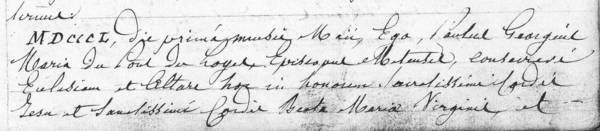 MDCCCL, die primâ mensis Maii, Ego, Paulus Georgius
Maria Du Pont du Loges, Episcopus Metensis, consecravi
Ecclesiam et Altare hoc in honorem Sacratissimi Cordis
Jesu et Sanctissimi Cordis Beatæ Mariæ Virginis et